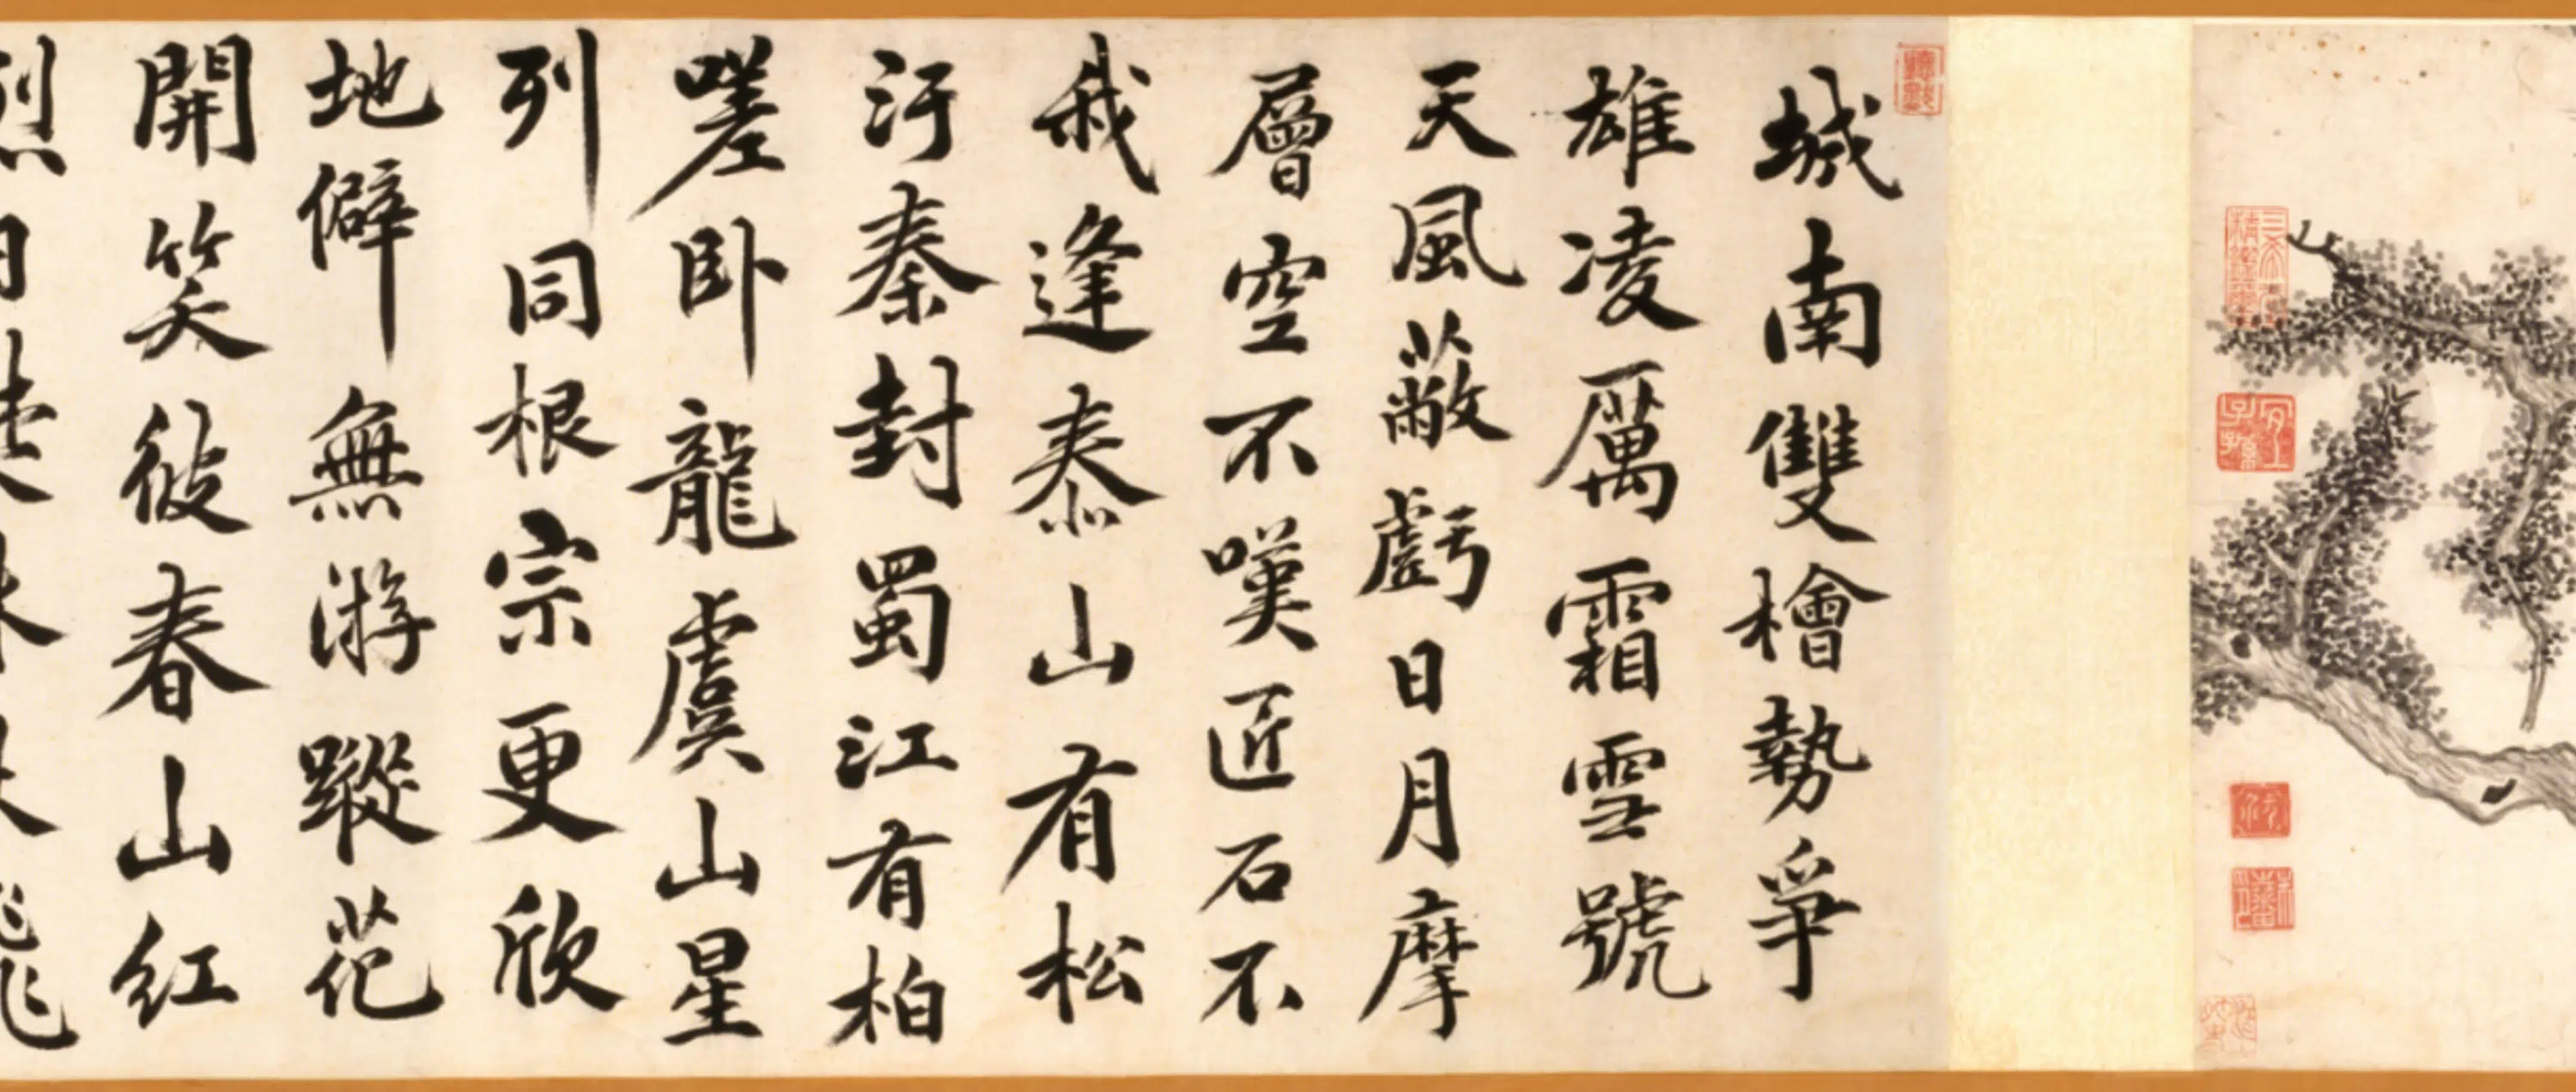 城南雙檜勢爭
雄凌厲霜雪號
天風蔽虧日月摩
層空不嘆匠石不
我逢泰山有松
汙秦封蜀江有柏
嗟卧龍虞山星
列同根宗更欣
地僻無游蹤花
開笑彼春山紅